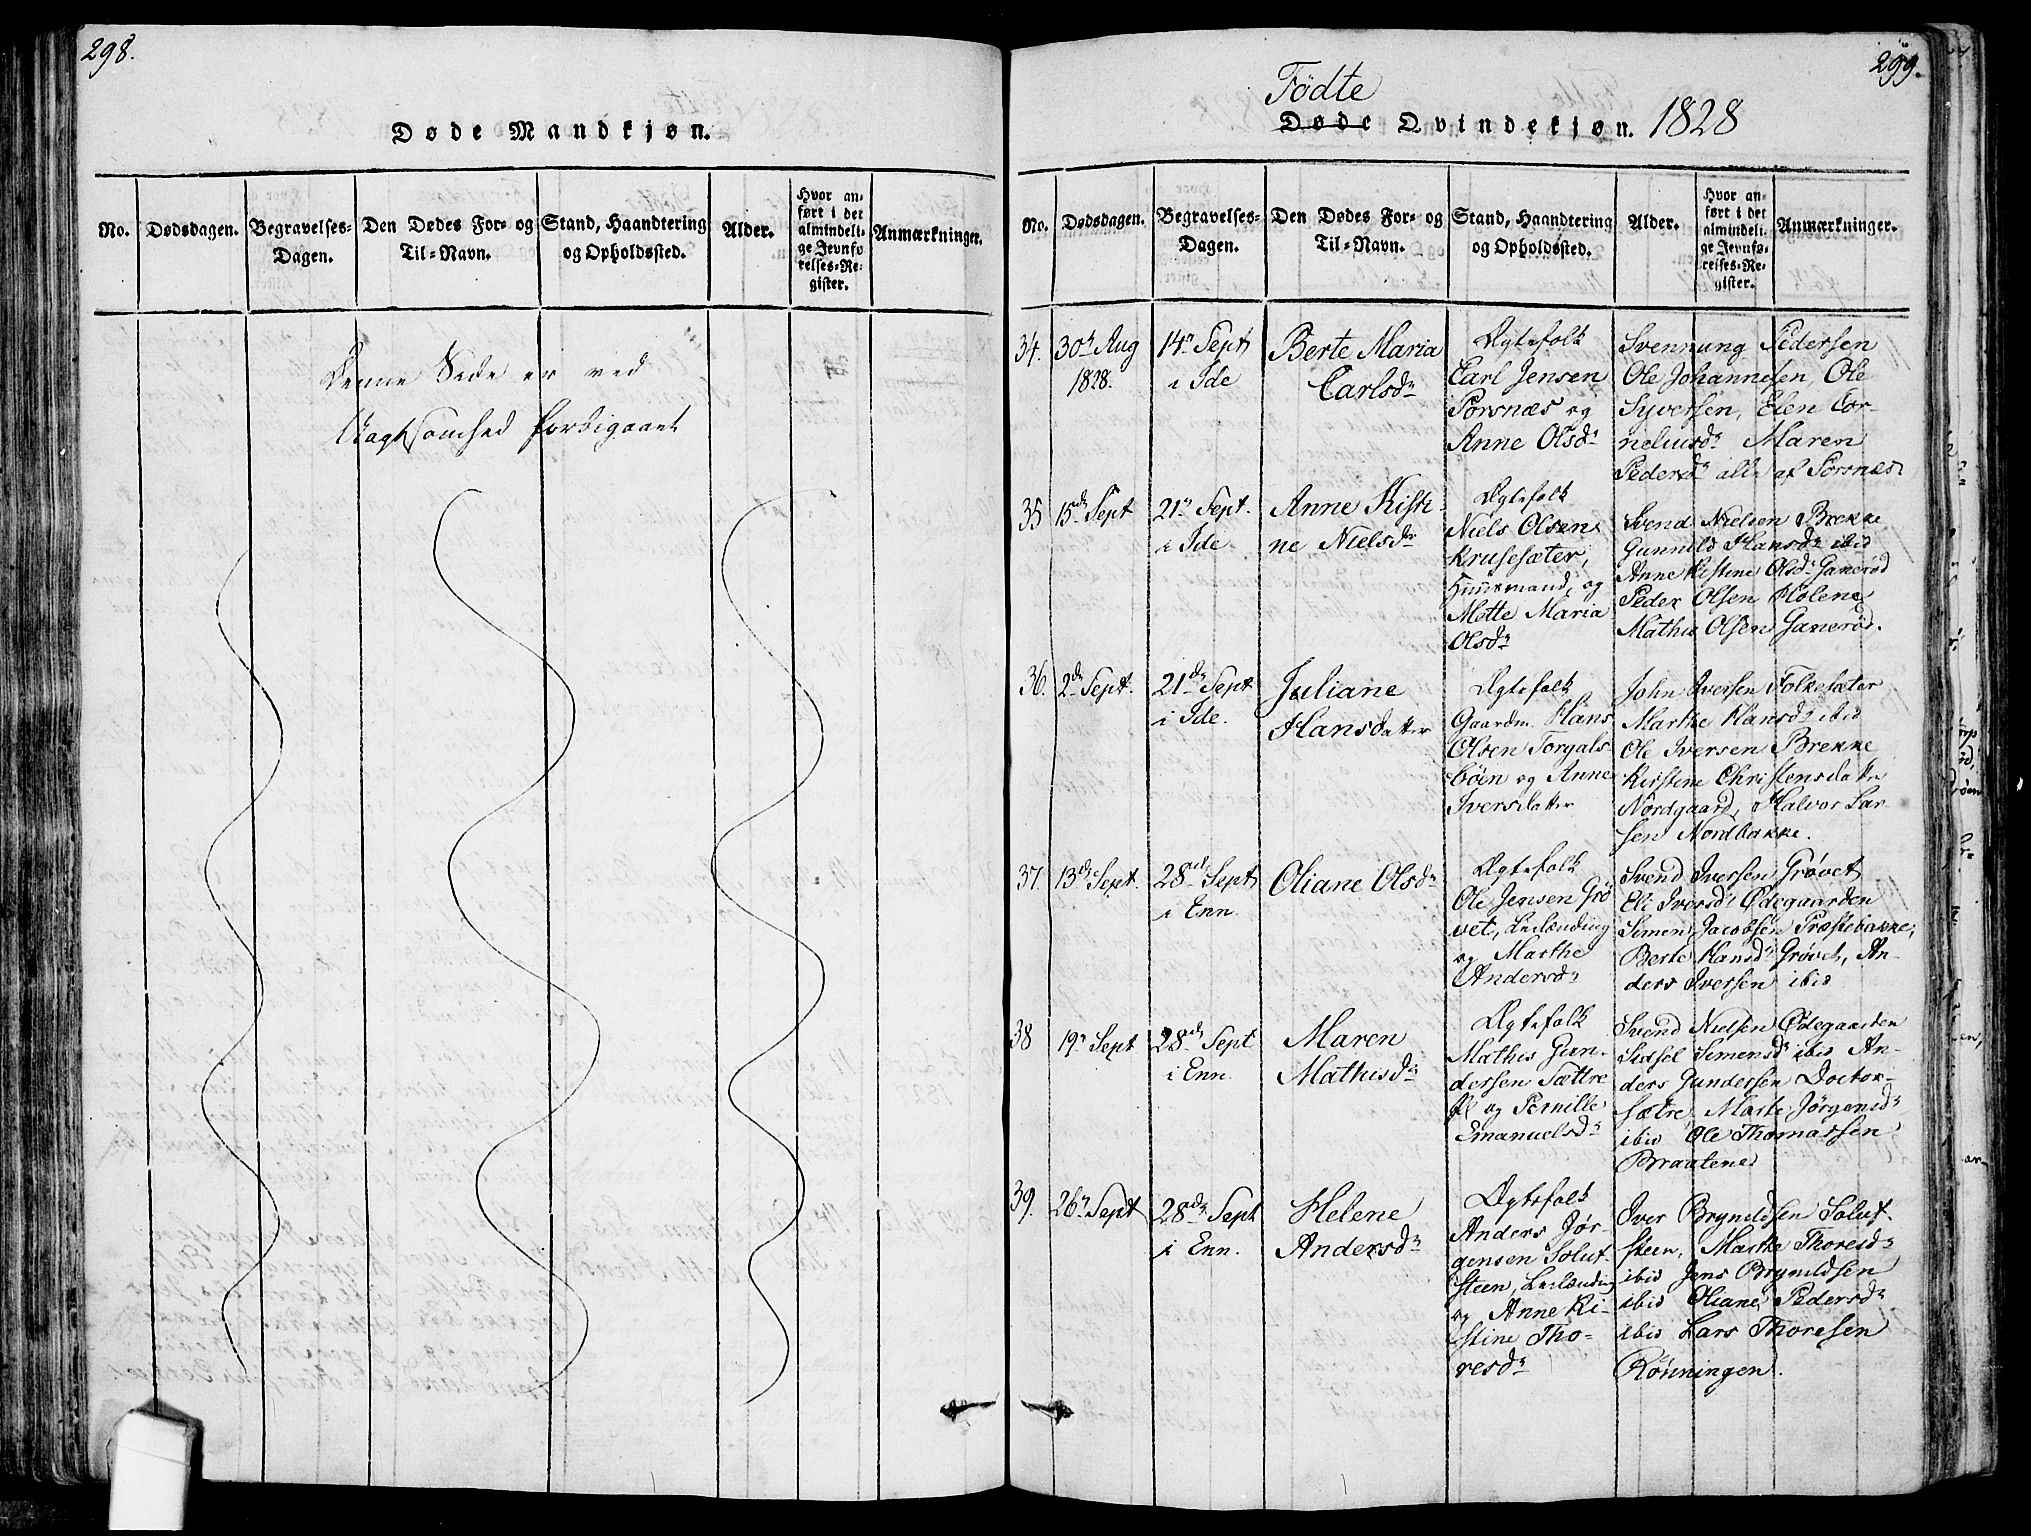 298.
Døde Mandkjøn.
No.
Dødsdagen.
Begravelses-
Dagen.
Den Dødes For- og
Til-Navn.
Stand, Haandtering
og Opholdssted.
Alder.
Hvor an-
ført i det
almindeli-
ge Jevnfø-
relses-Re-
gister.
Anmærkninger.
Denne Side er ved
Uagtsomhed forbigaaet
299.
Födte
Døde Qvindekjøn. 1828
No.
Dødsdagen.
Begravelses-
Dagen.
Den Dødes For- og
Til-Navn.
Stand, Haandtering
og Opholdssted.
Alder.
Hvor an-
ført i det
almindeli-
ge Jevnfø-
relses-Re-
gister.
Anmærkninger.
34.
30te Aug
1828.
14n Sept
i Ide
Berte Maria
Carlsdr
Ægtefolk
Carl Jensen
Porsnæs og
Anne Olsdr
Svennung Pedersen
Ole Johannesen, Ole
Syversen, Elen Cor-
neliusdr Maren
Pedersdr alle af Porsnæs
35
15de Sept
21n Sept.
i Ide
Anne Kisti-
ne Nielsdr
Ægtefolk
Niels Olsen
Krusesæter,
Huusmand, og
Mette Maria
Olsdr
Svend Nielsen Brekke
Gunnild Hansdr ibid
Anne Kistine Olsdr Ganerød
Peder Olsen Holene
Mathis Olsen Ganerød.
36.
2de Sept.
21de Sept
i Ide.
Juliane
Hansdatter
Ægtefolk
Gaardm. Hans
Olsen Torgals-
böen og Anne
Iversdatter
John Iversen Folkesæter
Marthe Hansdr ibid
Ole Iversen Brekke
Kirstine Christensdatter
Nordgaard, Halvor Lar-
sen Nordbakke.
37.
13de Sept.
28de Sept
i Enn.
Oliane Olsdr
Ægtefolk
Ole Jensen Grö
vet, Leilænding
og Marthe
Andersdr
Svend Iversen Grövet
Eli Iversdr Ødegaarden
Simen Jacobsen Præstebakke,
Berte Hansdr Grövet, An-
ders Iversen ibid
38
19n Sept
28de Sept
i Enn.
Maren
Mathisdr
Ægtefolk
Mathis Gun-
dersen Sættre
og Pernille
Emanuelsdr
Svend Nielsen Ødegaarden
Sidsel Simensdr ibid An-
ders Gundersen Doctor-
sætre Marte Jörgensdr
ibid Ole Thomassen
Braatene
39.
26n Sept
28de Sept
i Enn.
Helene
Andersdr
Ægtefolk
Anders Jör-
gensen Solut-
steen, Leilænding
og Anne Ki-
stine Tho-
resdr
Iver Bryneldsen Solut-
steen, Marthe Thoresdr
ibid Jens Bryneldsen
ibid Oliane Pedersdr
ibid Lars Thoresen
Rönningen.